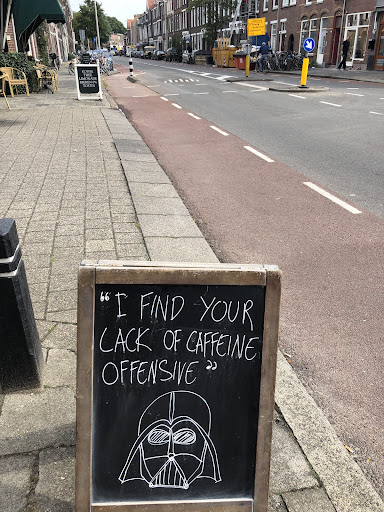 “ I FIND YOUR
LACK OF CAFFEINE
OFFENSIVE ”